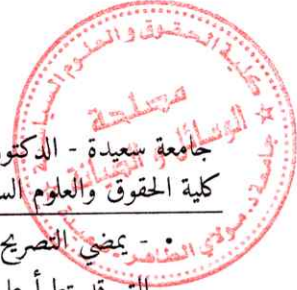 كلية الحقوق والعلوم السيا
مصلحة
الوسائل و الصيانة
جامعة د. مولاي الطاهر
جامعة سعيدة - الدكتور
كلية الحقوق والعلوم الس
• - يمضي التصريح